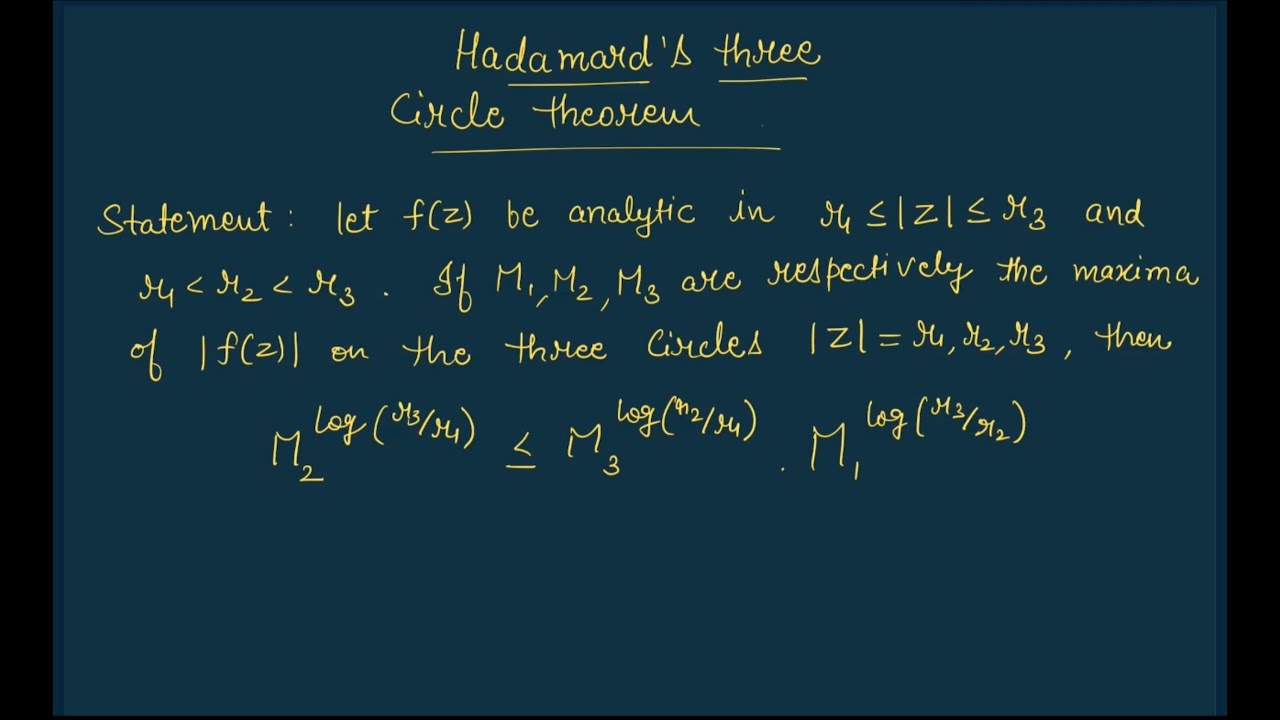 Hadamard's three
Circle theorem
Statement: let f(z) be analytic in r₁ ≤ |z| ≤ r₃ and
r₁ < r₂ < r₃. If M₁, M₂, M₃ are respectively the maxima
of |f(z)| on the three circles |z| = r₁, r₂, r₃, then
M₂^log(r₃/r₁) ≤ M₃^log(r₂/r₁) . M₁^log(r₃/r₂)